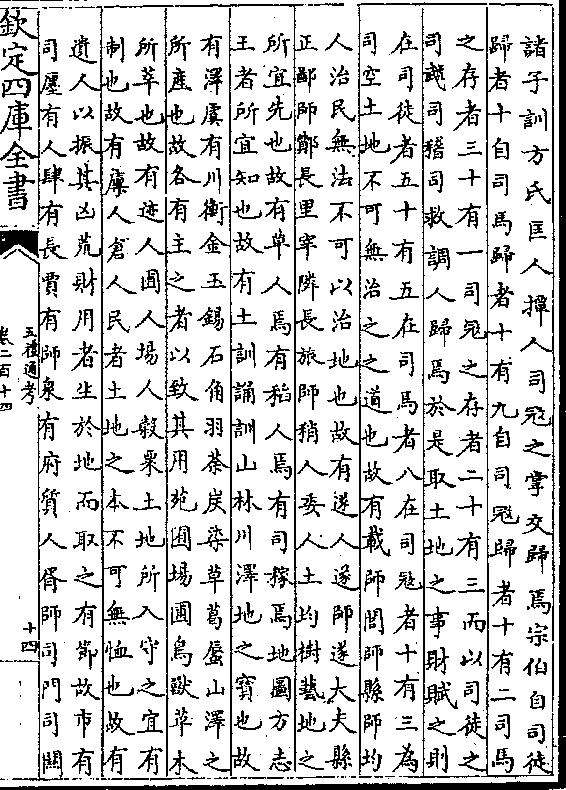 諸子訓方氏匡人撢人司冦之掌交歸焉宗伯自司徒
歸者十自司馬歸者十有九自司冦歸者十有二司馬
之存者三十有一司冦之存者二十有三而以司徒之
司虣司稽司救調人歸焉於是取土地之事財賦之則
在司徒者五十有五在司馬者八在司冦者十有三為
司空土地不可無治之之道也故有載師閭師縣師均
人治民無法不可以治地也故有遂人遂師遂大夫縣
正鄙師酇長里宰隣長旅師稍人委人土均樹藝地之
所宜先也故有草人焉有稻人焉有司稼焉地圖方志
王者所宜知也故有土訓誦訓山林川澤地之寶也故
有澤虞有川衡金玉錫石角羽荼炭染草葛蜃山澤之
所產也故各有主之者以致其用苑囿場圃鳥獸草木
所萃也故有迹人囿人場人榖粟土地所入守之宜有
制也故有廪人倉人民者土地之本不可無恤也故有
遺人以振其凶荒財用者生於地而取之有節故市有
司廛有人肆有長賈有師泉有府質人胥師司門司關
欽定四庫全書
五禮通考
卷二百十四
十四